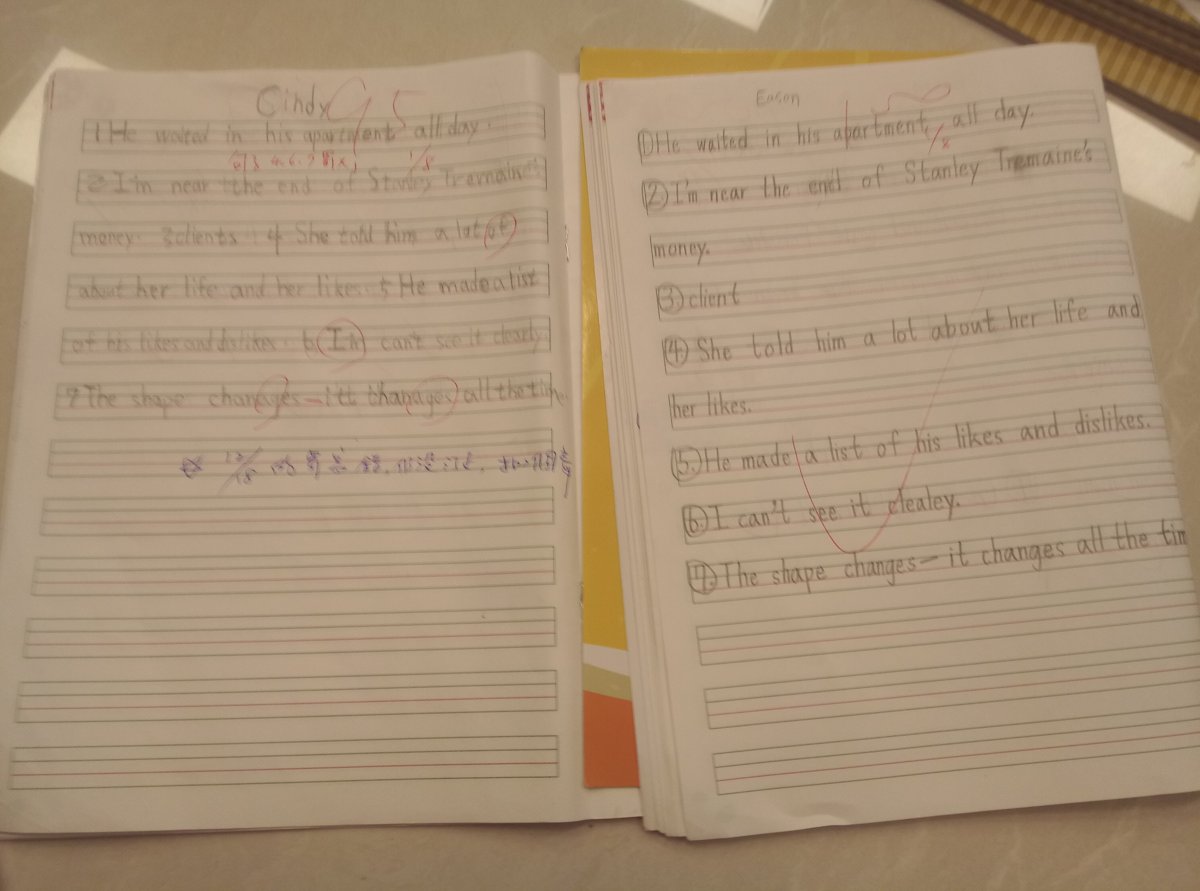 Cindy 95
1 He waited in his apartment all day.
1/8
2 I'm near the end of Stanley Tremaine's
money. 3 clients 4 She told him a lot of
about her life and her likes. 5 He made a list
of his likes and dislikes. 6 In can't see it clearly
7 The shape
all the time.
12/18
Eason
①He waited in his apartment all day.
②I'm near the end of Stanley Tremaine's
money.
③client
④She told him a lot about her life and
her likes.
⑤He made a list of his likes and dislikes.
⑥I can't see it clealey.
⑦The shape changes—it changes all the tim